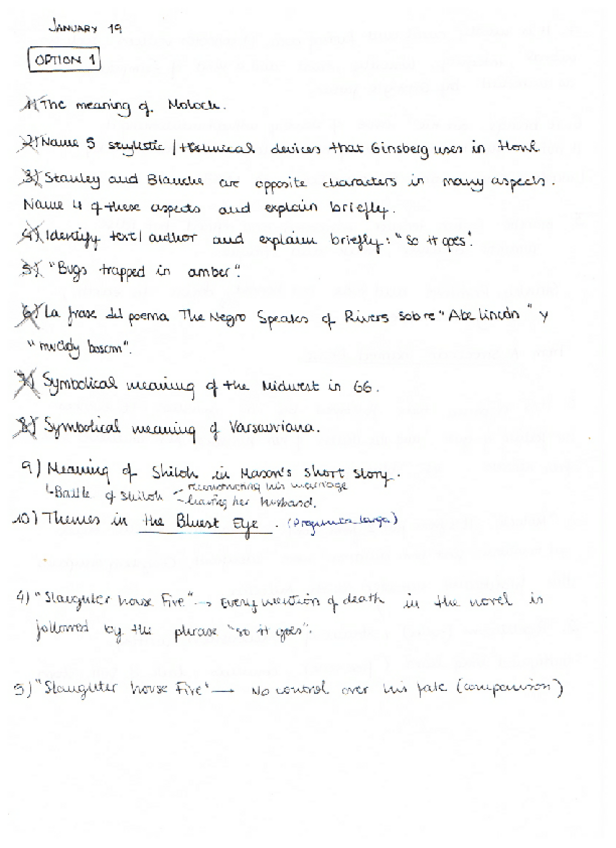 JANUARY 19
OPTION 1
1) The meaning of Moloch.
2) Name 5 stylistic / technical devices that Ginsberg uses in Howl
3) Stanley and Blanche are opposite characters in many aspects.
Name 4 of these aspects and explain briefly.
4) Identify text/author and explain briefly: "So it goes".
5) "Bugs trapped in amber".
6) La frase del poema The Negro Speaks of Rivers sobre "Abe Lincoln" y
"muddy bosom".
7) Symbolical meaning of the Midwest in GG.
8) Symbolical meaning of Varsouviana.
9) Meaning of Shiloh in Mason's short story.
Battle of Shiloh his marriage
leaving her husband.
10) Themes in the Bluest Eye. (Pregunta larga)
4) "Slaughter house Five" → Every mention of death in the novel is
followed by the phrase "so it goes".
5) "Slaughter house Five" → No control over his fate (comparison)